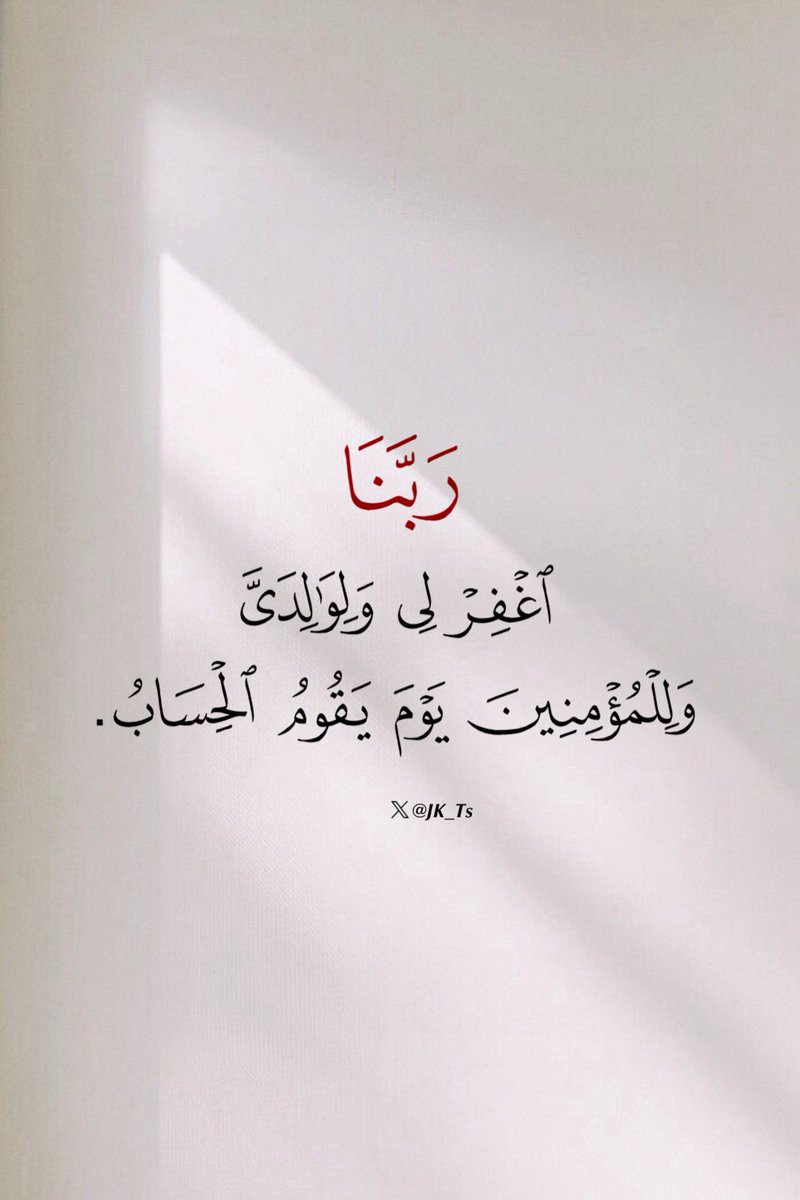 رَبَّنَا
ٱغۡفِرۡ لِى وَلِوَٰلِدَىَّ
وَلِلۡمُؤۡمِنِينَ يَوۡمَ يَقُومُ ٱلۡحِسَابُ.
𝕏 @JK_Ts